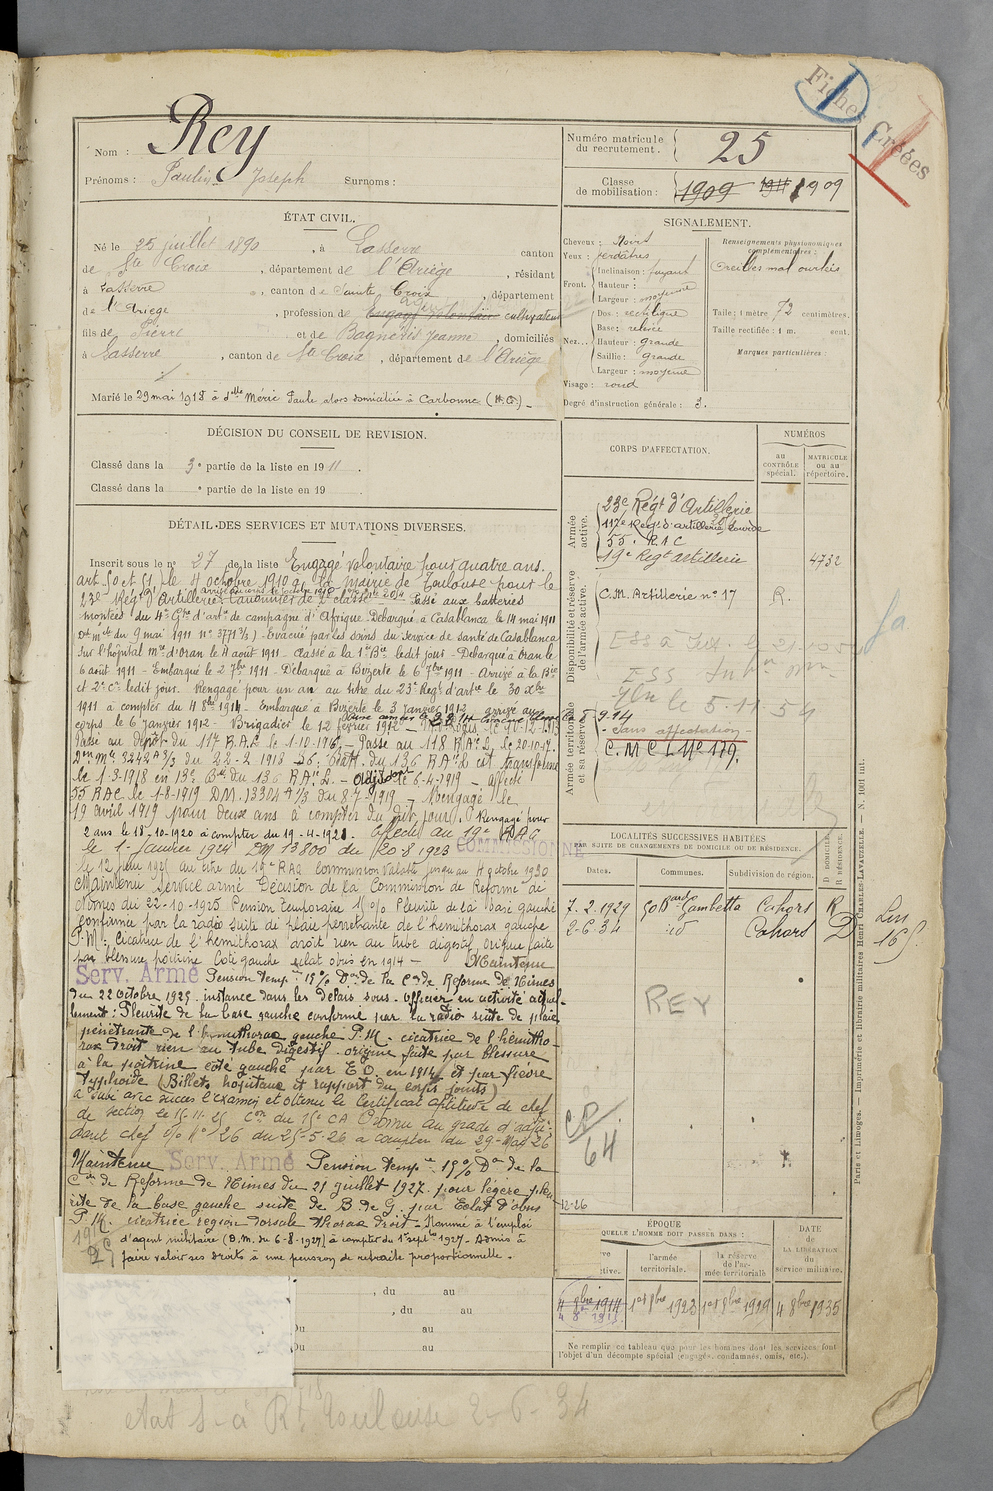 Fiches Créées
Nom : Rey
Prénoms : Paulin Joseph Surnoms :
Numéro matricule du recrutement. 25
Classe de mobilisation : 1909 1911 1909
ÉTAT CIVIL.
Né le 25 juillet 1890, à Lasserre canton
de Ste Croix, département de l'Ariège, résidant
à Lasserre, canton de Sainte Croix, département
de l'Ariège, profession de engagé volontaire cultivateur
fils de Pierre et de Bagneris Jeanne, domiciliés
à Lasserre, canton de Ste Croix, département de l'Ariège
Marié le 29 mai 1918 à delle Méric Paule alors domiciliée à Carbonne (H.G.)
SIGNALEMENT.
Cheveux : Noirs
Yeux : verdâtres
Front. Inclinaison : fuyant
Hauteur :
Largeur : moyenne
Nez... Dos : rectiligne
Base : relevée
Hauteur : grande
Saillie : grande
Largeur : moyenne
Visage : rond
Degré d'instruction générale : 3.
Renseignements physionomiques complémentaires :
Oreilles mal ourlées
Taille : 1 mètre 72 centimètres.
Taille rectifiée : 1 m. cent.
Marques particulières :
DÉCISION DU CONSEIL DE REVISION.
Classé dans la 3e partie de la liste en 1911.
Classé dans la e partie de la liste en 19
DÉTAIL DES SERVICES ET MUTATIONS DIVERSES.
Inscrit sous le no 27 de la liste Engagé volontaire pour quatre ans.
art. 50 et 51, le 4 octobre 1910 à la mairie de Toulouse pour le
23e Régt d'Artillerie. Canonnier de 2e classe Passé aux batteries
montées du 4e Gpe d'arte de campagne d'Afrique. Débarqué à Casablanca le 14 mai 1911
du 9 mai 1911 no 3771 3/3) - Evacué par les soins du Service de santé de Casablanca
sur l'hôpital mre d'Oran le 4 août 1911 - Classé à la 1re Bie ledit jour - Débarqué à Oran le
6 août 1911 - Embarqué le 2 7bre 1911 - Débarqué à Bizerte le 6 7bre 1911 - Arrivé à la Bie
et 2e Cn ledit jour. Rengagé pour un an au titre du 23e Régt d'artie le 30 Xbre
1911 à compter du 4 8bre 1914 - Embarqué à Bizerte le 3 janvier 1912 arrivé au
corps le 6 janvier 1912 - Brigadier le 12 février 1912
Passé au dépôt du 117 R.A.L le 1-10-1916 - Passé au 118 R.A.L. le 20-10-17.
3242 A 3/3 du 22-2-1918 du 136 RAL est transformé
le 1-3-1918 en 13e Bie du 136 RAL. - Adjudant le 6-4-1919 - affecté
55 RAC le 1-8-1919 DM. 13304 A 1/3 du 8-7-1919 - Rengagé le
19 avril 1919 pour deux ans à compter du dit jour. Rengagé pour
2 ans le 18-10-1920 à compter du 19-4-1921. affecté au 19e RAC
le 1 Janvier 1924 DM 13800 du 20-8-1923 COMMISSIONNÉ
le 12 juin 1925 au titre du 19e RAC commission valable jusqu'au 4 octobre 1930
Maintenu service armé Décision de la Commission de Réforme de
Nîmes du 22-10-1925 Pension temporaire 15% Pleurite de la base gauche
confirmée par la radio suite de plaie perforante de l'hémithorax gauche
P.M. : cicatrice de l'hémithorax droit rien au tube digestif origine faite
par blessure poitrine Coté gauche éclat obus en 1914 - Maintenu
Serv. Armé Pension temp.re 15% Don de la Con de Réforme de Nîmes
du 22 Octobre 1925 instance dans les délais sous-officier en activité actuel-
lement : Pleurite de la base gauche confirmé par la radio suite de plaie
pénétrante de l'hémithorax gauche P.M. cicatrice de l'hémitho-
rax droit rien au tube digestif origine faite par blessure
à la poitrine coté gauche par E.O. en 1914 et par fièvre
typhoïde (Billets hôpitaux et rapport du corps joints)
a subi avec succès l'examen et obtenu le Certificat aptitude de chef
de section le 15-11-25 Con du 15e CA Promu au grade d'adju-
dant chef o/o No 26 du 25-5-26 à compter du 29-Mai 26
Maintenu Serv. Armé Pension temp.re 15% Don de la
Con de Réforme de Nîmes du 21 Juillet 1927 pour légère pleu-
rite de la base gauche suite de B. de G. par Eclat d'obus
P.M. cicatrice région dorsale thorax droit - Nommé à l'emploi
d'agent militaire (D.M. du 6-8-1927) à compter du 1er septbre 1927 - Admis à
faire valoir ses droits à une pension de retraite proportionnelle.
, du au
, du au
Du au
Du au
CORPS D'AFFECTATION.
NUMÉROS
au CONTRÔLE spécial.
MATRICULE ou au répertoire.
Armée active.
23e Régt d'Artillerie
117e Régt d'artillerie lourde
55e R.A.C
19e Régt artillerie 4732
Disponibilité et réserve de l'armée active.
C.M. Artillerie no 17 R.
Armée territoriale et sa réserve.
le 5.11.54
Sans affectation
C.M.C.L No 179.
LOCALITÉS SUCCESSIVES HABITÉES
PAR SUITE DE CHANGEMENTS DE DOMICILE OU DE RÉSIDENCE.
Dates. Communes. Subdivision de région. D DOMICILE. R RÉSIDENCE.
7-2-1929 50 Bard Gambetta Cahors R
2-6-34 id Cahors D
REY
64
12-26
ÉPOQUE
A QUELLE L'HOMME DOIT PASSER DANS :
l'armée territoriale.
la réserve de l'armée territoriale
DATE DE LA LIBÉRATION du service militaire.
4 8bre 1914 1er 8bre 1923 1er 8bre 1929 4 8bre 1935
Ne remplir ce tableau que pour les hommes dont les services font
l'objet d'un décompte spécial (engagés, condamnés, omis, etc.).
Paris et Limoges. — Imprimerie et librairie militaires Henri CHARLES-LAVAUZELLE. — N. 1001 int.
état S- à Rt Toulouse 2-6-34